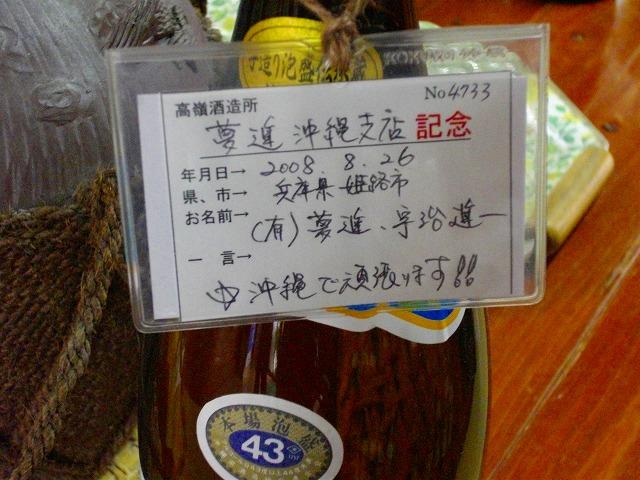 手造り泡盛
高嶺酒造所 No4733
夢進 沖縄支店 記念
年月日→ 2008. 8. 26
県、市→ 兵庫県 姫路市
お名前→ (有)夢進、宇治進一
一言→
沖縄で頑張ります!!
本場泡盛
43